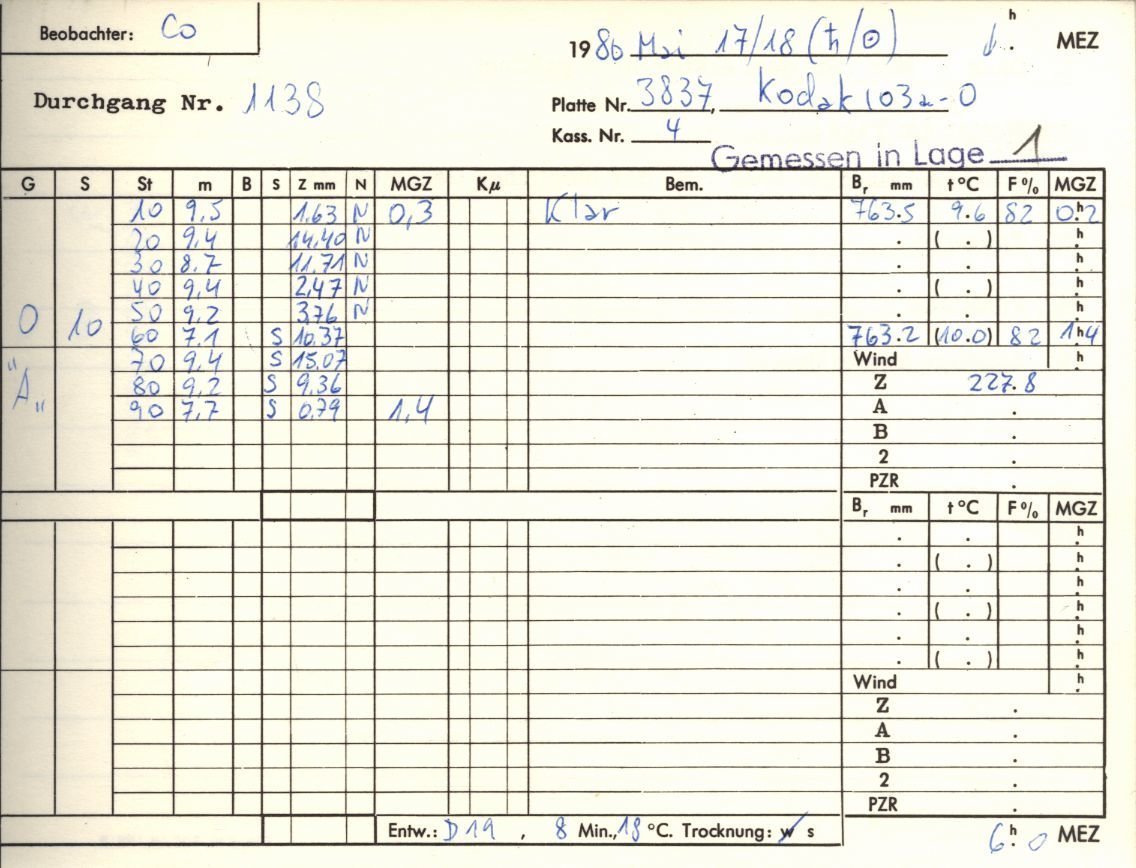 Beobachter: Co
1980 Mai 17/18 (♄/☉) h . MEZ
Durchgang Nr. 1138
Platte Nr. 3837, Kodak 103a-O
Kass. Nr. 4
Gemessen in Lage 1
G S St m B S Z mm N MGZ Kμ Bem. Br mm t°C F% MGZ
10 9,5 1,63 N 0,3 Klar 763.5 9.6 82 0h2
20 9,4 14,40 N . ( . ) h
30 8,7 11,71 N . . h
40 9,4 2,47 N . ( . ) h
O 10 50 9,2 3,76 N . . h
60 7,1 S 10,37 763.2 (10.0) 82 1h4
"A" 70 9,4 S 15,07 Wind h
80 9,2 S 9,36 Z 227.8
90 7,7 S 0,79 1,4 A .
B .
2 .
PZR .
Br mm t°C F% MGZ
. . h
. ( . ) h
. . h
. ( . ) h
. . h
. ( . ) h
Wind h
Z .
A .
B .
2 .
PZR .
Entw.: D19 , 8 Min., 18 °C. Trocknung: w s
6h. 0 MEZ